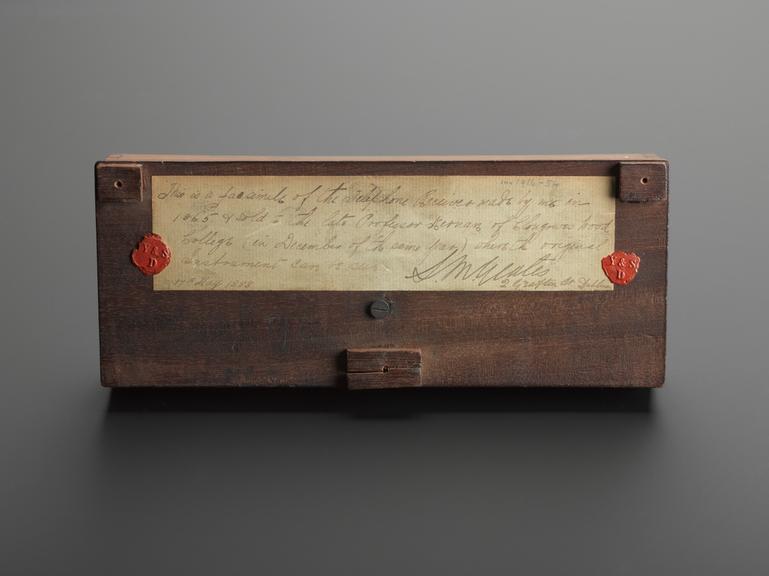 inv 1916-34
This is a facsimile of the Telephone Receiver made by me in
1865 & sold to the late Professor Kernan of Clongowes Wood
College (in December of the same year) where the original
instrument can be seen
S. M. Yeates
17th May 1888 2 Grafton St. Dublin
Y & S
D
Y & S
D